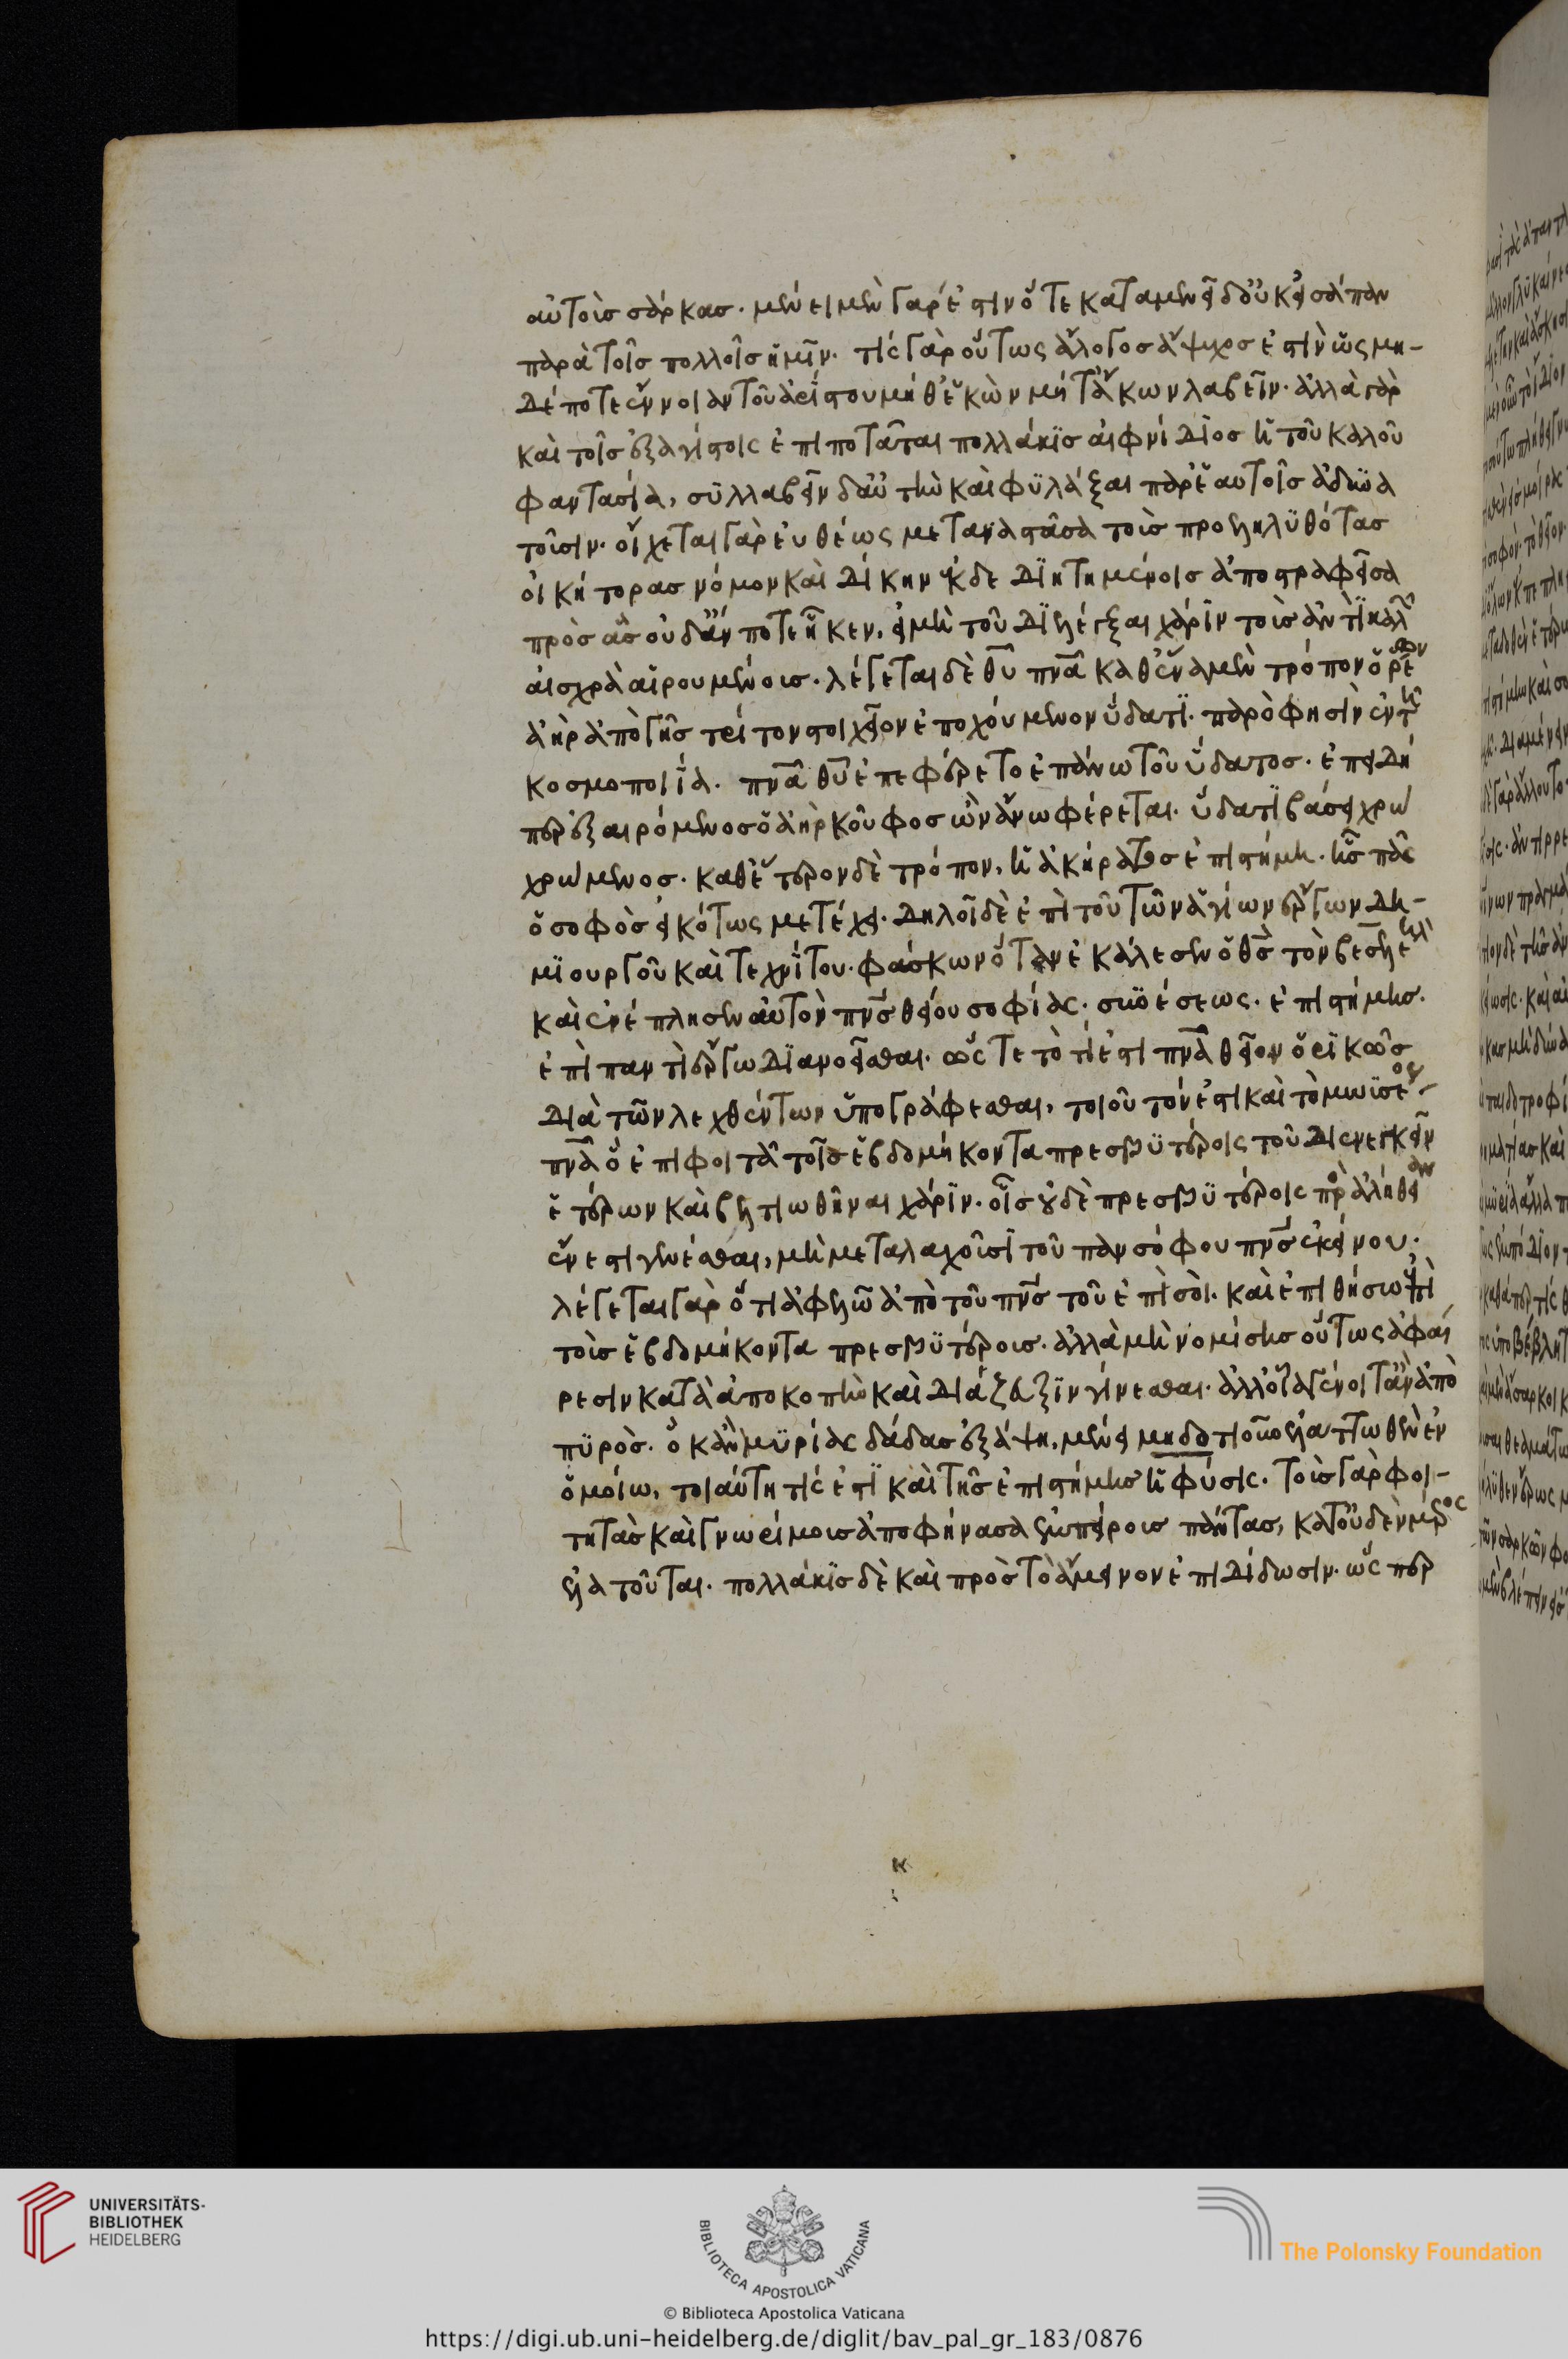 αὐτοὺς σάρκας. μένει μὲν γάρ ἐστιν ὅτε καταμένει δ' οὐκ εἰσάπαν
παρὰ τοῖς πολλοῖς ἡμῖν. τίς γὰρ οὕτως ἄλογος ἄψυχος ἐστὶν ὡς μη-
δέποτε ἔννοιαν τοῦ ἀρίστου μήθ' ἑκὼν μήτ' ἄκων λαβεῖν. ἀλλὰ γὰρ
καὶ τοῖς ἐξαγίστοις ἐπιποτᾶται πολλάκις αἰφνίδιος ἡ τοῦ καλοῦ
φαντασία, συλλαβεῖν δ' αὐτὴν καὶ φυλάξαι παρ' ἑαυτοῖς ἀδυνα
τοῦσιν. οἴχεται γὰρ εὐθέως μεταναστᾶσα τοὺς προσεληλυθότας
οἰκήτορας νόμον καὶ δίκην ἐκδεδιῃτημένοις ἀποστραφεῖσα
πρὸς οὓς οὐδ' ἄν ποτε ἧκεν, εἰ μὴ τοῦ διελέγξαι χάριν τοὺς ἀντὶ καλῶν
αἰσχρὰ αἱρουμένους. λέγεται δὲ θυ πνα καθ' ἕνα μὲν τρόπον ὁ ῥέων
ἀὴρ ἀπὸ γῆς τρίτον στοιχεῖον ἐποχούμενον ὕδατι. παρὸ φησὶν ἐν τῇ
κοσμοποιΐα. πνα θυ ἐπεφέρετο ἐπάνω τοῦ ὕδατος. ἐπειδή
περ ἐξαιρόμενος ὁ ἀὴρ κοῦφος ὢν ἄνω φέρεται. ὕδατι βάσει χρω
χρώμενος. καθ' ἕτερον δὲ τρόπον, ἡ ἀκήρατος ἐπιστήμη. ἧς πᾶς
ὁ σοφὸς εἰκότως μετέχει. δηλοῖ δὲ ἐπὶ τοῦ τῶν ἁγίων ἔργων δη-
μιουργοῦ καὶ τεχνίτου. φάσκων ὅταν ἐκάλεσεν ὁ θς τὸν βεσελεὴλ
καὶ ἐνέπλησεν αὐτὸν πνς θείου σοφίας. συνέσεως. ἐπιστήμης.
ἐπὶ παντὶ ἔργω διανοεῖσθαι. ὥστε τὸ τί ἐστι πνα θεῖον ὁρικῶς
διὰ τῶν λεχθέντων ὑπογράφεσθαι, τοιοῦτόν ἐστι καὶ τὸ μωϋσέος
πνα ὃ ἐπιφοιτᾶ τοῖς ἑβδομήκοντα πρεσβυτέροις τοῦ διενεγκεῖν
ἑτέρων καὶ βελτιωθῆναι χάριν. οἷς οὐδὲ πρεσβυτέροις πρὸς ἀλήθειαν
ἔνεστι γενέσθαι, μὴ μεταλαχοῦσι τοῦ πανσόφου πνς ἐκείνου.
λέγεται γὰρ ὅτι ἀφελῶ ἀπὸ τοῦ πνς τοῦ ἐπὶ σοὶ. καὶ ἐπιθήσω ἐπὶ
τοὺς ἑβδομήκοντα πρεσβυτέρους. ἀλλὰ μὴ νομίσης οὕτως ἀφαί
ρεσιν κατὰ ἀποκοπὴν καὶ διάζευξιν γίνεσθαι. ἀλλ' οἵα γένοιτ' ἂν ἀπὸ
πυρὸς. ὃ κἂν μυρίας δᾶδας ἐξάψη, μένει μηδοτιοῦν ἐλαττωθὲν ἐν
ὁμοίω, τοιαύτη τίς ἐστι καὶ τῆς ἐπιστήμης ἡ φύσις. τοὺς γὰρ φοι-
τητὰς καὶ γνωρίμους ἀποφήνασα ἐμπείρους πάντας, κατ' οὐδὲν μέρος
ἐλατοῦται. πολλάκις δὲ καὶ πρὸς τὸ ἄμεινον ἐπιδίδωσιν. ὥσπερ
κ
UNIVERSITÄTS-
BIBLIOTHEK
HEIDELBERG
BIBLIOTECA APOSTOLICA VATICANA
The Polonsky Foundation
© Biblioteca Apostolica Vaticana
https://digi.ub.uni-heidelberg.de/diglit/bav_pal_gr_183/0876